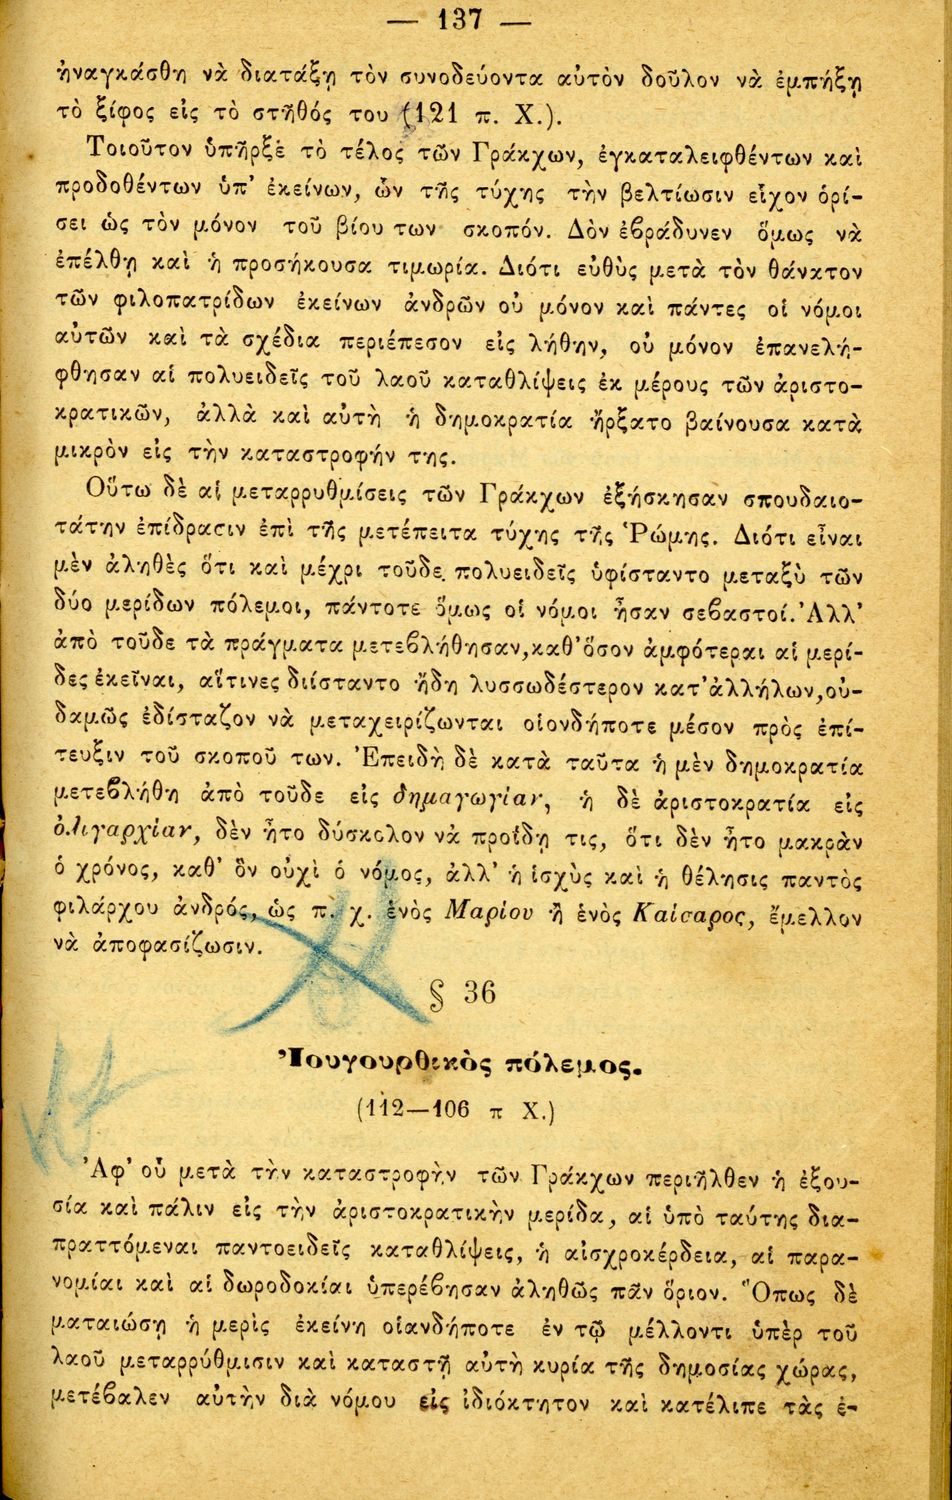 — 137 —
ἠναγκάσθη νὰ διατάξῃ τὸν συνοδεύοντα αὐτὸν δοῦλον νὰ ἐμπήξῃ
τὸ ξίφος εἰς τὸ στῆθός του (121 π. Χ.).
Τοιοῦτον ὑπῆρξε τὸ τέλος τῶν Γράκχων, ἐγκαταλειφθέντων καὶ
προδοθέντων ὑπ' ἐκείνων, ὧν τῆς τύχης τὴν βελτίωσιν εἶχον ὁρί-
σει ὡς τὸν μόνον τοῦ βίου των σκοπόν. Δὸν ἐβράδυνεν ὅμως νὰ
ἐπέλθῃ καὶ ἡ προσήκουσα τιμωρία. Διότι εὐθὺς μετὰ τὸν θάνατον
τῶν φιλοπατρίδων ἐκείνων ἀνδρῶν οὐ μόνον καὶ πάντες οἱ νόμοι
αὐτῶν καὶ τὰ σχέδια περιέπεσον εἰς λήθην, οὐ μόνον ἐπανελή-
φθησαν αἱ πολυειδεῖς τοῦ λαοῦ καταθλίψεις ἐκ μέρους τῶν ἀριστο-
κρατικῶν, ἀλλὰ καὶ αὐτὴ ἡ δημοκρατία ἤρξατο βαίνουσα κατὰ
μικρὸν εἰς τὴν καταστροφήν της.
Οὕτω δὲ αἱ μεταρρυθμίσεις τῶν Γράκχων ἐξήσκησαν σπουδαιο-
τάτην ἐπίδρασιν ἐπὶ τῆς μετέπειτα τύχης τῆς Ῥώμης. Διότι εἶναι
μὲν ἀληθὲς ὅτι καὶ μέχρι τοῦδε πολυειδεῖς ὑφίσταντο μεταξὺ τῶν
δύο μερίδων πόλεμοι, πάντοτε ὅμως οἱ νόμοι ἦσαν σεβαστοί. Ἀλλ'
ἀπὸ τοῦδε τὰ πράγματα μετεβλήθησαν, καθ' ὅσον ἀμφότεραι αἱ μερί-
δες ἐκεῖναι, αἵτινες διίσταντο ἤδη λυσσωδέστερον κατ' ἀλλήλων, οὐ-
δαμῶς ἐδίσταζον νὰ μεταχειρίζωνται οἱονδήποτε μέσον πρὸς ἐπί-
τευξιν τοῦ σκοποῦ των. Ἐπειδὴ δὲ κατὰ ταῦτα ἡ μὲν δημοκρατία
μετεβλήθη ἀπὸ τοῦδε εἰς δημαγωγίαν, ἡ δὲ ἀριστοκρατία εἰς
ὀλιγαρχίαν, δὲν ἦτο δύσκολον νὰ προΐδῃ τις, ὅτι δὲν ἦτο μακρὰν
ὁ χρόνος, καθ' ὃν οὐχὶ ὁ νόμος, ἀλλ' ἡ ἰσχὺς καὶ ἡ θέλησις παντὸς
φιλάρχου ἀνδρός, ὡς π. χ. ἑνὸς Μαρίου ἢ ἑνὸς Καίσαρος, ἔμελλον
νὰ ἀποφασίζωσιν.
§ 36
Ἰουγουρθικὸς πόλεμος.
(112—106 π Χ.)
Ἀφ' οὗ μετὰ τὴν καταστροφὴν τῶν Γράκχων περιῆλθεν ἡ ἐξου-
σία καὶ πάλιν εἰς τὴν ἀριστοκρατικὴν μερίδα, αἱ ὑπὸ ταύτης δια-
πραττόμεναι παντοειδεῖς καταθλίψεις, ἡ αἰσχροκέρδεια, αἱ παρα-
νομίαι καὶ αἱ δωροδοκίαι ὑπερέβησαν ἀληθῶς πᾶν ὅριον. Ὅπως δὲ
ματαιώσῃ ἡ μερὶς ἐκείνη οἱανδήποτε ἐν τῷ μέλλοντι ὑπὲρ τοῦ
λαοῦ μεταρρύθμισιν καὶ καταστῇ αὐτὴ κυρία τῆς δημοσίας χώρας,
μετέβαλεν αὐτὴν διὰ νόμου εἰς ἰδιόκτητον καὶ κατέλιπε τὰς ἐ-